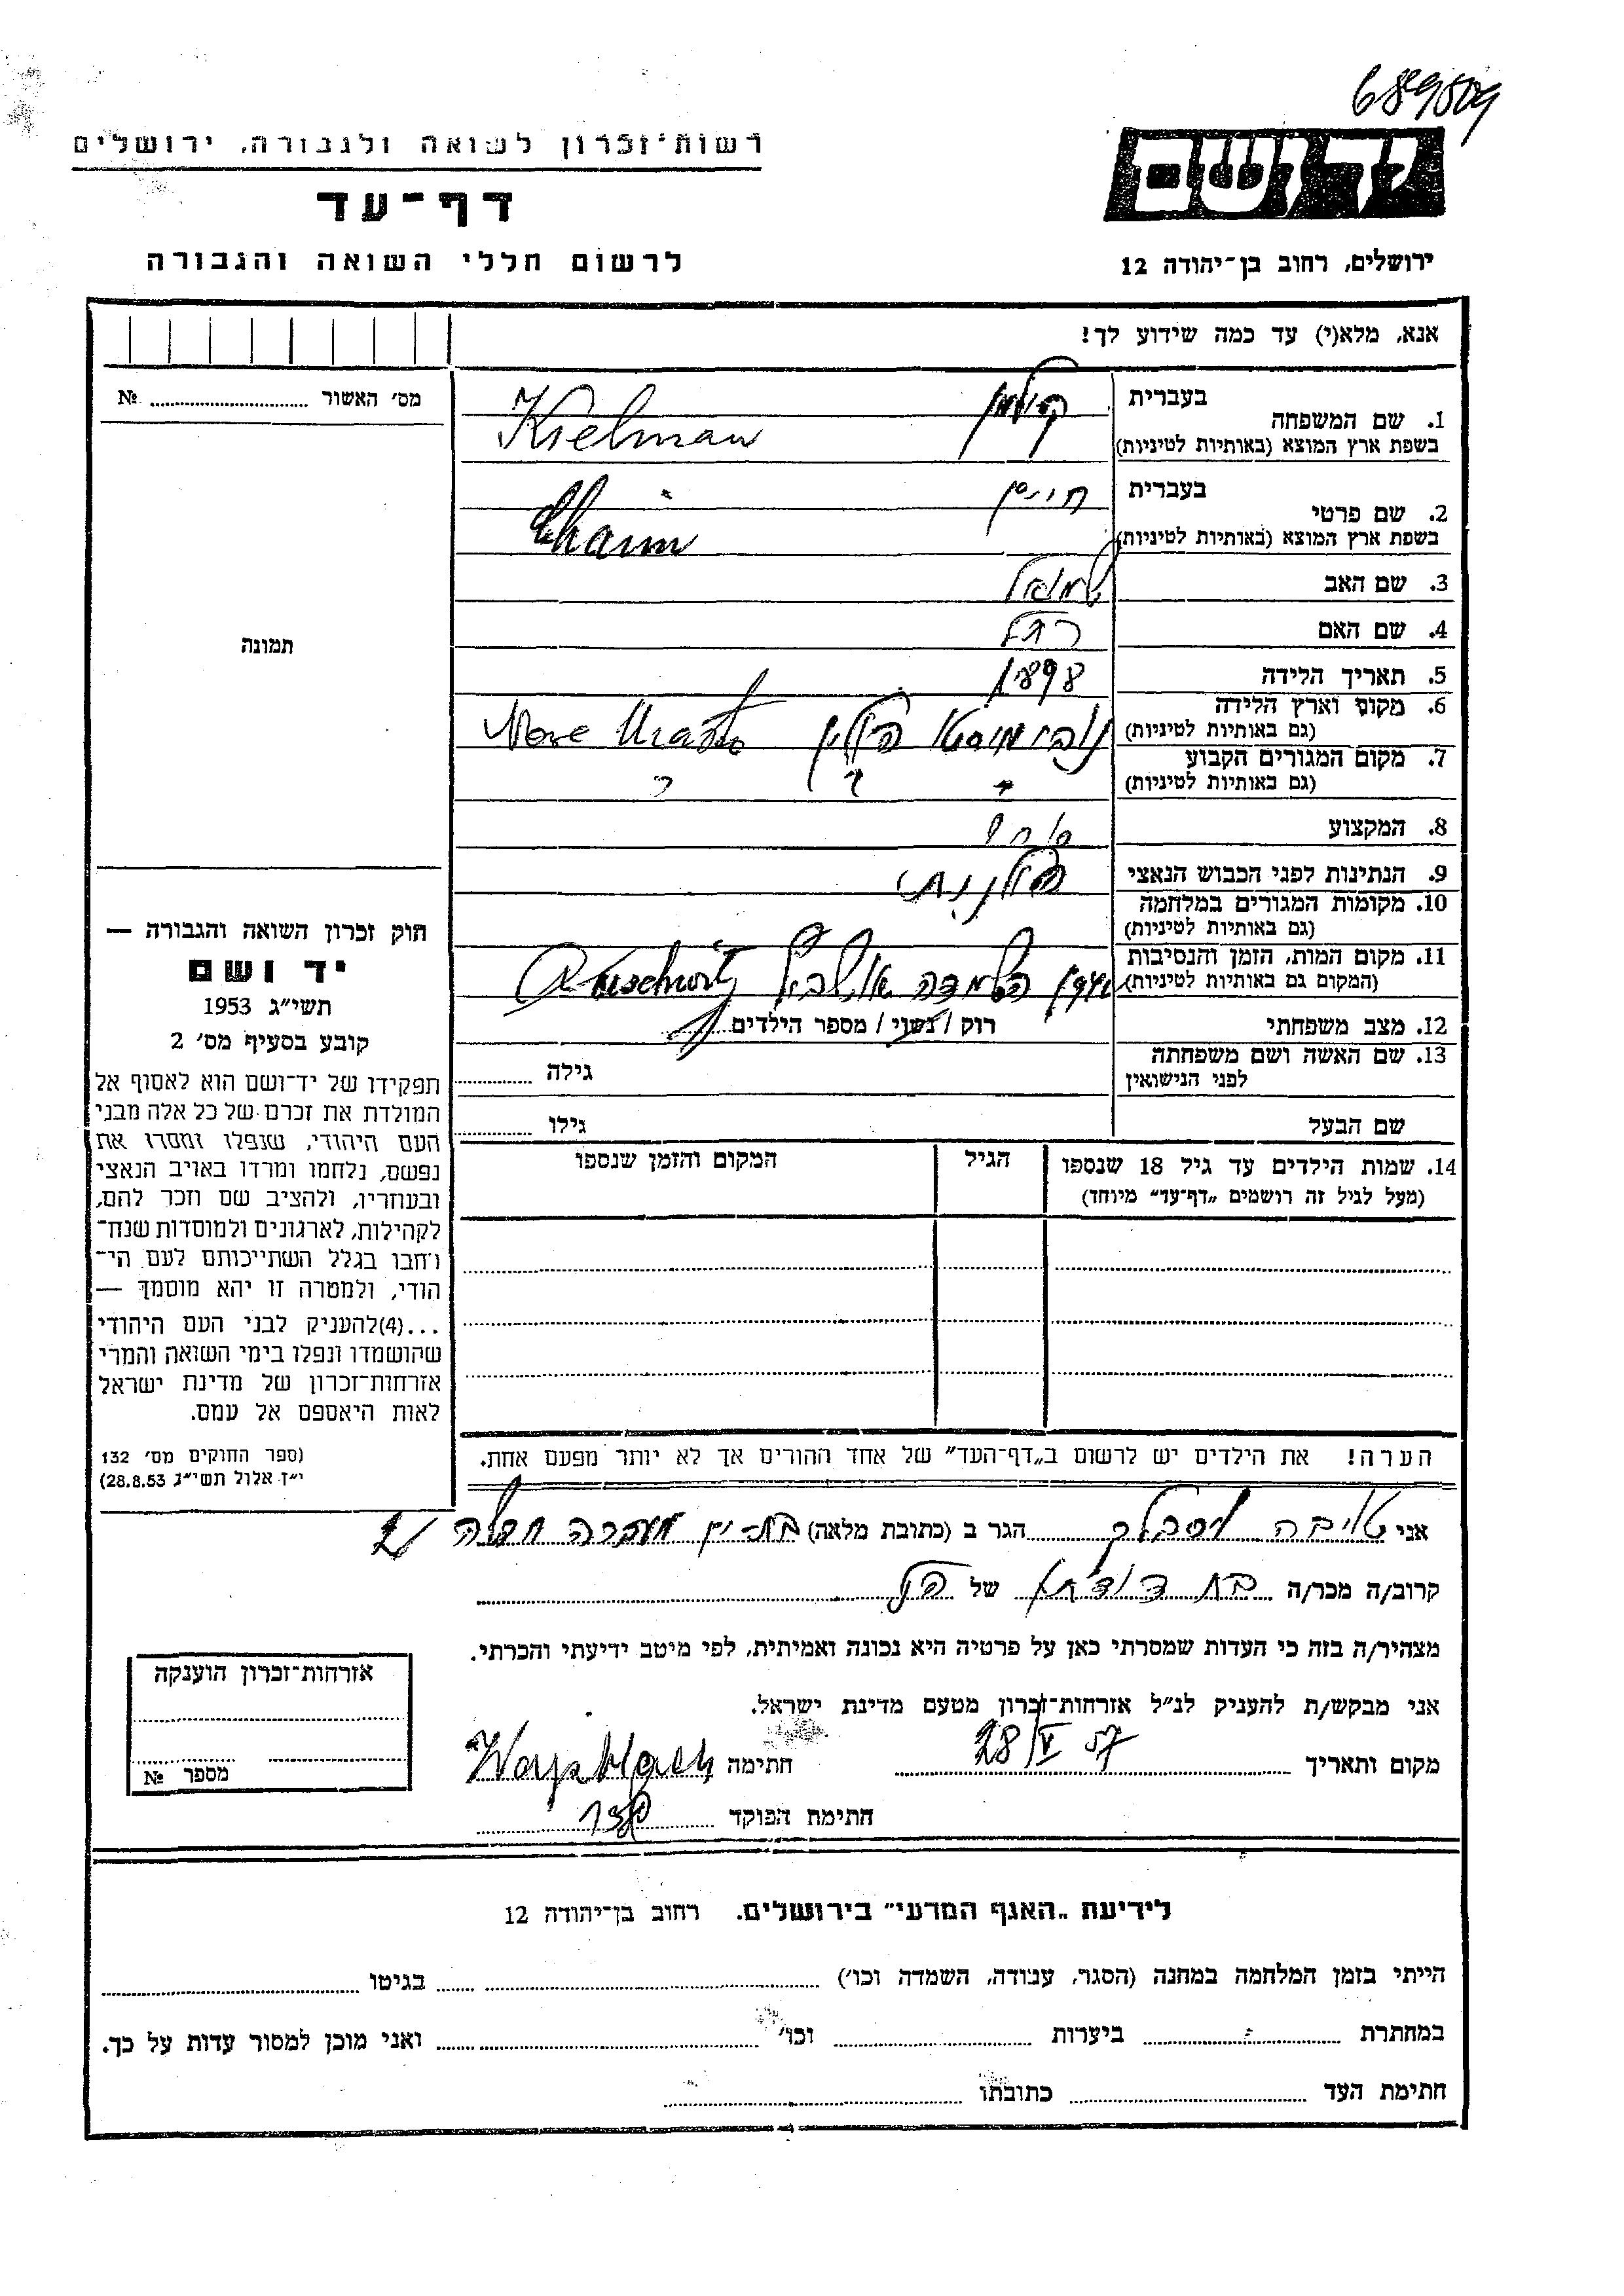 689509
רשות־זכרון לשואה ולגבורה, ירושלים
יד ושם
דף־עד
לרשום חללי השואה והגבורה
ירושלים, רחוב בן־יהודה 12
אנא, מלא(י) עד כמה שידוע לך!
מס׳ האשור № 
1. שם המשפחה
בעברית
בשפת ארץ המוצא (באותיות לטיניות)
Kielman
2. שם פרטי
בעברית חיים
בשפת ארץ המוצא (באותיות לטיניות) Chaim
3. שם האב שמואל
4. שם האם רחל
5. תאריך הלידה 1898
6. מקום וארץ הלידה
(גם באותיות לטיניות) נובימיסטו פולין Nove Miasto
7. מקום המגורים הקבוע
(גם באותיות לטיניות) " " "
8. המקצוע
9. הנתינות לפני הכבוש הנאצי פולנית
10. מקומות המגורים במלחמה
(גם באותיות לטיניות)
11. מקום המות, הזמן והנסיבות
(המקום גם באותיות לטיניות) Auschwitz
12. מצב משפחתי רוק / נשוי / מספר הילדים
13. שם האשה ושם משפחתה
לפני הנישואין
גילה
שם הבעל גילו
14. שמות הילדים עד גיל 18 שנספו
(מעל לגיל זה רושמים „דף־עד״ מיוחד)
הגיל
המקום והזמן שנספו
הערה! את הילדים יש לרשום ב„דף־העד״ של אחד ההורים אך לא יותר מפעם אחת.
תמונה
חוק זכרון השואה והגבורה —
יד ושם
תשי״ג 1953
קובע בסעיף מס׳ 2
תפקידו של יד־ושם הוא לאסוף אל
המולדת את זכרם של כל אלה מבני
העם היהודי, שנפלו ומסרו את
נפשם, נלחמו ומרדו באויב הנאצי
ובעוזריו, ולהציב שם וזכר להם,
לקהילות, לארגונים ולמוסדות שנח־
רחבו בגלל השתייכותם לעם הי־
הודי, ולמטרה זו יהא מוסמך —
...(4)להעניק לבני העם היהודי
שהושמדו ונפלו בימי השואה והמרי
אזרחות־זכרון של מדינת ישראל
לאות היאספם אל עמם.
(ספר החוקים מס׳ 132
י״ז אלול תשי״ג 28.8.53)
אני הגר ב (כתובת מלאה) בת־ים
קרוב/ה מכר/ה בת דודתו של הנ״ל
מצהיר/ה בזה כי העדות שמסרתי כאן על פרטיה היא נכונה ואמיתית, לפי מיטב ידיעתי והכרתי.
אני מבקש/ת להעניק לנ״ל אזרחות־זכרון מטעם מדינת ישראל.
מקום ותאריך 28/V 57 חתימה
חתימת הפוקד
אזרחות־זכרון הוענקה
מספר №
לידיעת „האגף המדעי״ בירושלים, רחוב בן־יהודה 12
הייתי בזמן המלחמה במחנה (הסגר, עבודה, השמדה וכו׳) בגיטו
במחתרת ביערות וכו׳ ואני מוכן למסור עדות על כך.
חתימת העד כתובתו